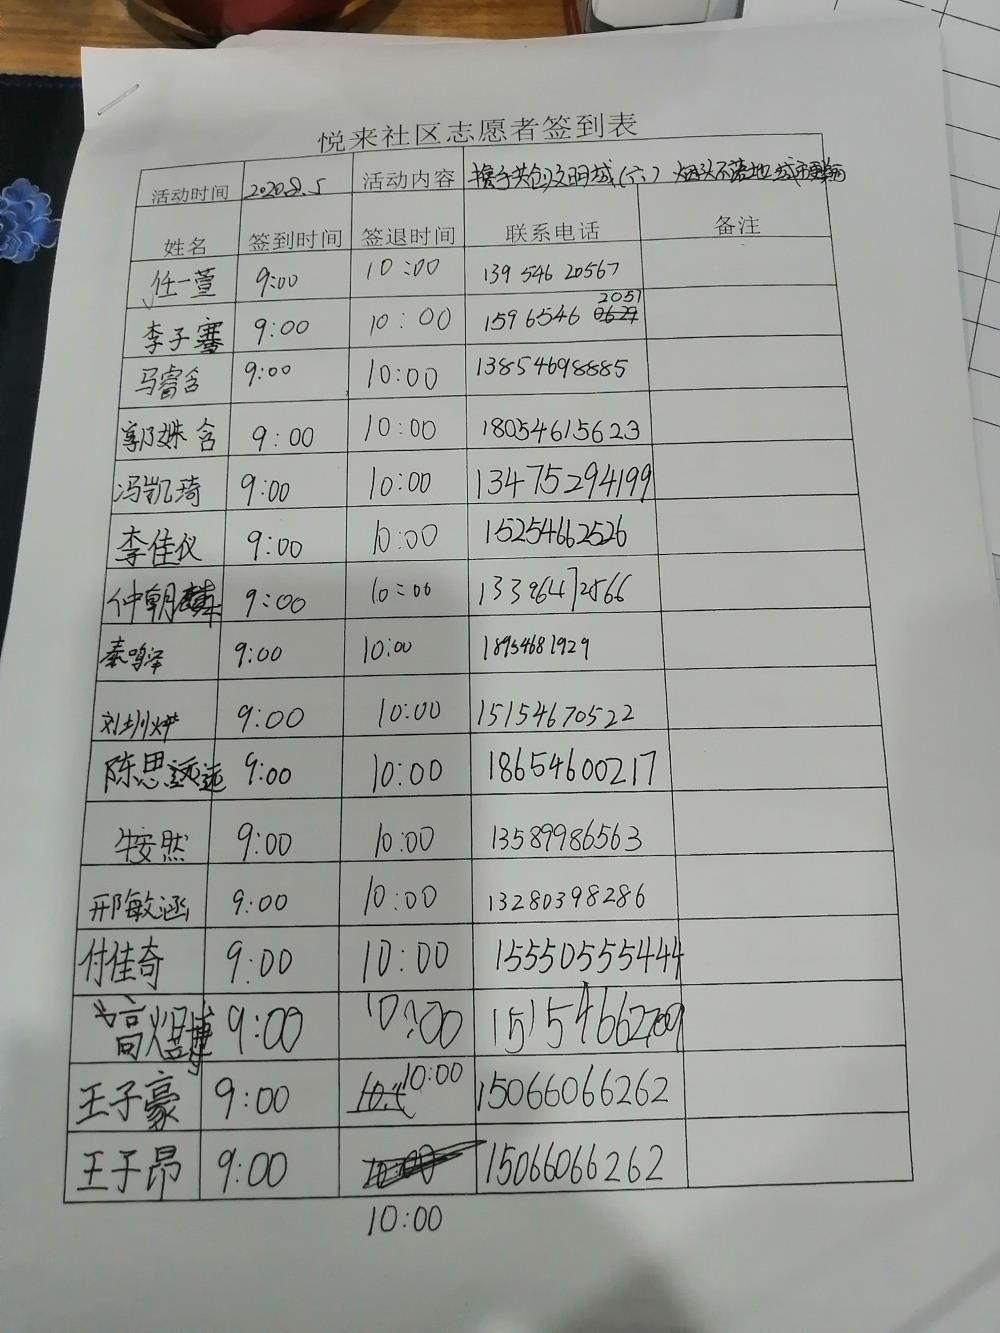 悦来社区志愿者签到表
活动时间 2020.8.5 活动内容 携手共创文明城(六) 烟头不落地 城市更美丽
姓名 签到时间 签退时间 联系电话 备注
任一萱 9:00 10:00 139 546 20567
李子骞 9:00 10:00 1596546 2057
马睿含 9:00 10:00 13854698885
郭姝含 9:00 10:00 18054615623
冯凯琦 9:00 10:00 13475294199
李佳仪 9:00 10:00 15254662526
仲朝麟 9:00 10:00
秦鸣泽 9:00 10:00 18954681929
刘圳烨 9:00 10:00 15154670522
陈思 9:00 10:00 18654600217
牛安然 9:00 10:00 13589986563
邢敏涵 9:00 10:00 13280398286
付佳奇 9:00 10:00 15550555444
高煜博 9:00 10:00
王子豪 9:00 10:00 15066066262
王子昂 9:00 10:00 15066066262
10:00